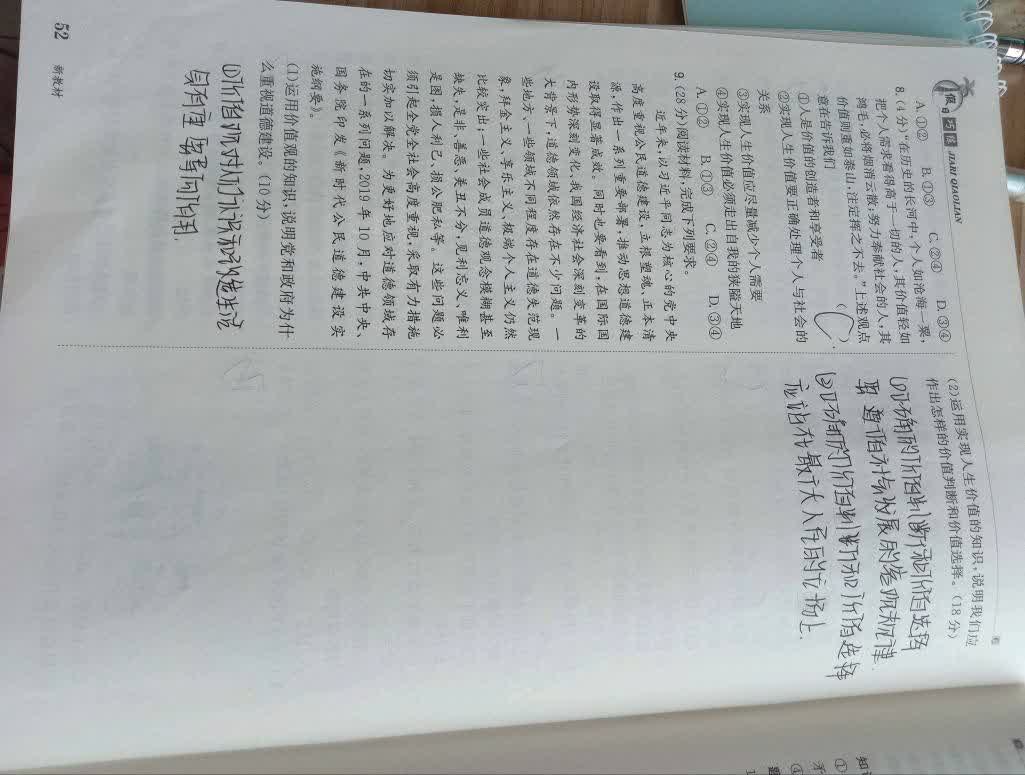 假日巧练 JIARI QIAOLIAN
A.①② B.①③ C.②④ D.③④
8.(4分)“在历史的长河中,个人如沧海一粟,
把个人需求看得高于一切的人,其价值轻如
鸿毛,必将烟消云散;努力奉献社会的人,其
价值则重如泰山,注定挥之不去。”上述观点
意在告诉我们 ( C )
①人是价值的创造者和享受者
②实现人生价值要正确处理个人与社会的
关系
③实现人生价值应尽量减少个人需要
④实现人生价值必须走出自我的狭隘天地
A.①② B.①③ C.②④ D.③④
9.(28分)阅读材料,完成下列要求。
近年来,以习近平同志为核心的党中央
高度重视公民道德建设,立根塑魂,正本清
源,作出一系列重要部署,推动思想道德建
设取得显著成效。同时也要看到,在国际国
内形势深刻变化、我国经济社会深刻变革的
大背景下,道德领域依然存在不少问题。一
些地方、一些领域不同程度存在道德失范现
象,拜金主义、享乐主义、极端个人主义仍然
比较突出;一些社会成员道德观念模糊甚至
缺失,是非、善恶、美丑不分,见利忘义、唯利
是图,损人利己、损公肥私等。这些问题必
须引起全党全社会高度重视,采取有力措施
切实加以解决。为更好地应对道德领域存
在的一系列问题,2019年10月,中共中央、
国务院印发《新时代公民道德建设实
施纲要》。
(1)运用价值观的知识,说明党和政府为什
么重视道德建设。(10分)
①价值观对人们认识和改造生活
具有重要导向作用.
(2)运用实现人生价值的知识,说明我们应
作出怎样的价值判断和价值选择。(18分)
①正确的价值判断和价值选择
要遵循社会发展的客观规律.
②正确的价值判断和价值选择
应站在最广大人民的立场上.
52 新教材
知识
①
矛
④